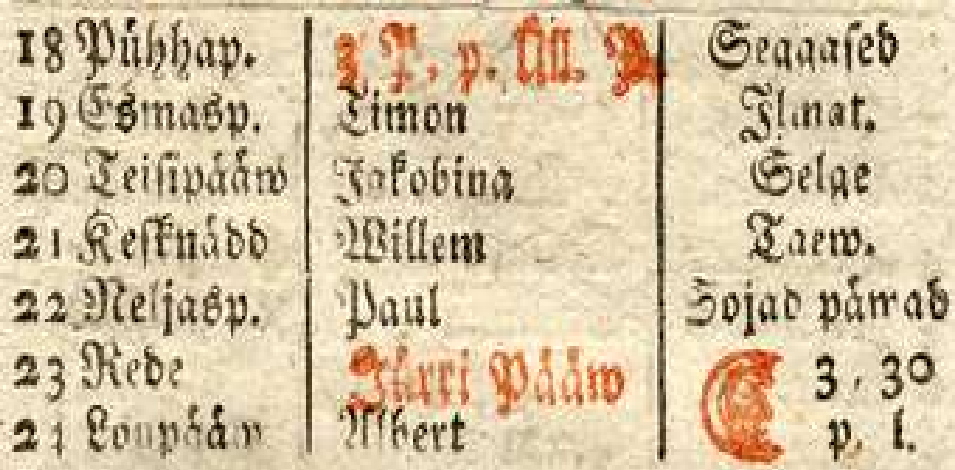 18 Pühhap. 3. P. p. Üll. P. Seggased
19 Esmasp. Timon Ilmat.
20 Teisipääw Jakobina Selge
21 Keſknädd Willem Taew.
22 Neljasp. Paul Sojad päwad
23 Rede Jürri Pääw 3. 30
24 Loupääw Albert p. l.